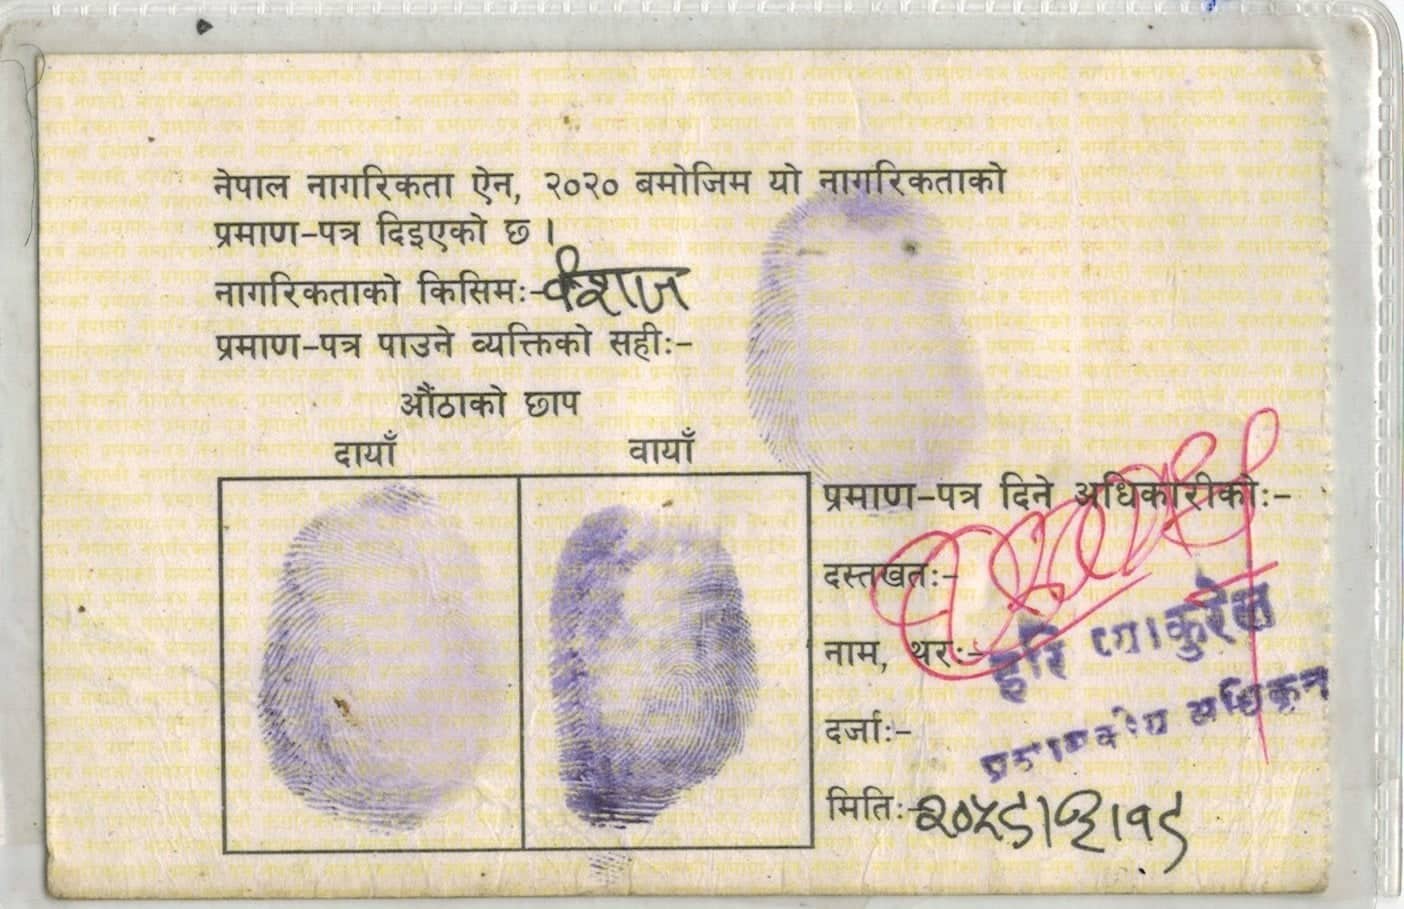 नेपाल नागरिकता ऐन, २०२० बमोजिम यो नागरिकताको
प्रमाण-पत्र दिइएको छ ।
नागरिकताको किसिमः- वंशज
प्रमाण-पत्र पाउने व्यक्तिको सहीः-
औंठाको छाप
दायाँ
वायाँ
प्रमाण-पत्र दिने अधिकारीकोः-
दस्तखतः-
नाम, थरः- हरि प्याकुरेल
दर्जाः-
मितिः-